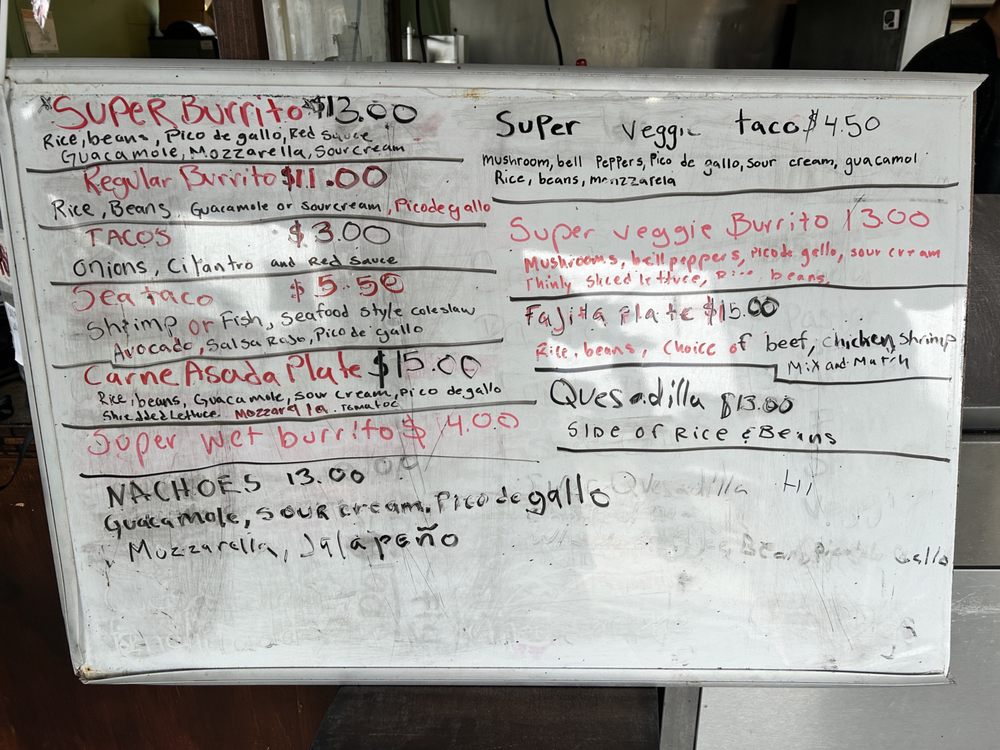 Super Burrito $13.00
Rice, beans, Pico de gallo, Red Sauce
Guacamole, Mozzarella, Sour cream
Regular Burrito $11.00
Rice, Beans, Guacamole or sour cream, Pico de gallo
TACOS $3.00
Onions, Cilantro and Red Sauce
Sea taco $5.50
Shrimp or Fish, Seafood style coleslaw
Avocado, Salsa Rosa, Pico de gallo
Carne Asada Plate $15.00
Rice, beans, Guacamole, sour cream, Pico de gallo
Shredded Lettuce, Mozzarella, Tomatoe
Super wet burrito $ 4.00
NACHOES 13.00
Guacamole, sour cream, Pico de gallo
Mozzarella, Jalapeño
Super veggie taco $4.50
mushroom, bell peppers, Pico de gallo, sour cream, guacamol
Rice, beans,
Super veggie Burrito 13.00
Mushrooms, bell peppers, pico de gello, sour cream
Thinly sliced lettuce, Rice beans,
Fajita Plate $15.00
Rice, beans, choice of beef, chicken, shrimp
Mix and Match
Quesadilla $13.00
Side of Rice & Beans
Quesadilla Hi